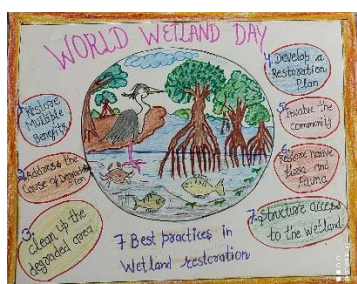 WORLD WETLAND DAY
Restore
Multiple
Benefits
2. Address the
Cause of Degradation
3.
Clean up the
degraded area
4. Develop a
Restoration
Plan
5. Involve the
community
6.
Restore native
flora and
Fauna
7. Structure access
to the wetland
7 Best practices in
Wetland restoration